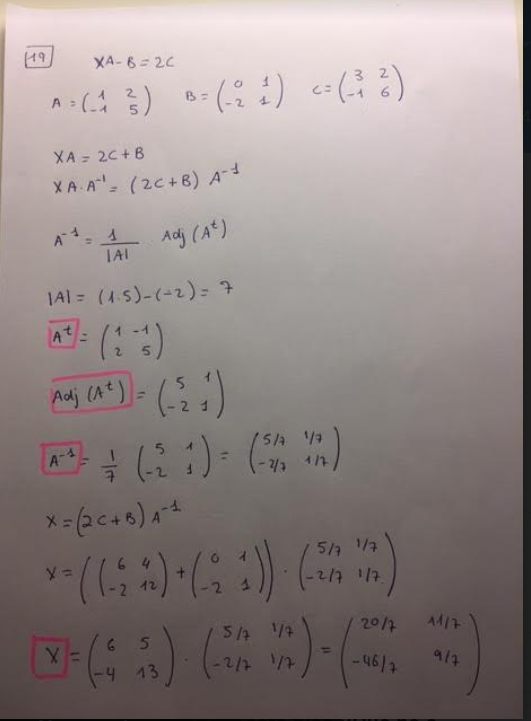 19 XA-B=2C
A = (1 2 -1 5) B = (0 1 -2 1) C = (3 2 -1 6)
XA = 2C+B
XA·A⁻¹ = (2C+B) A⁻¹
A⁻¹ = 1/|A| Adj (Aᵗ)
|A| = (1·5)-(-2) = 7
Aᵗ = (1 -1 2 5)
Adj (Aᵗ) = (5 1 -2 1)
A⁻¹ = 1/7 (5 1 -2 1) = (5/7 1/7 -2/7 1/7)
X = (2C+B) A⁻¹
X = ((6 4 -2 12) + (0 1 -2 1)) · (5/7 1/7 -2/7 1/7)
X = (6 5 -4 13) · (5/7 1/7 -2/7 1/7) = (20/7 11/7 -46/7 9/7)